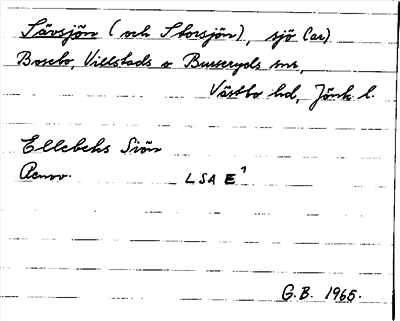 Sävsjön (och Storsjön), sjö (ar)
Bosebo, Villstads o Burseryds snr,
Västbo hd, Jönk. l.
Ellebeks Siön
Renov. LSA E¹
G.B. 1965.